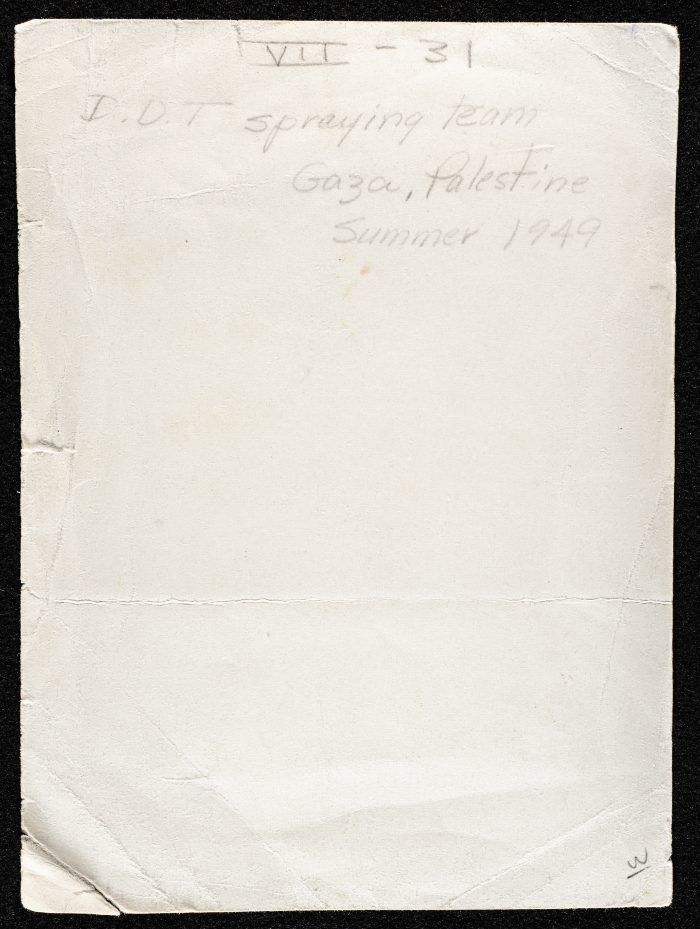 VII - 31
D.D.T spraying team
Gaza, Palestine
Summer 1949